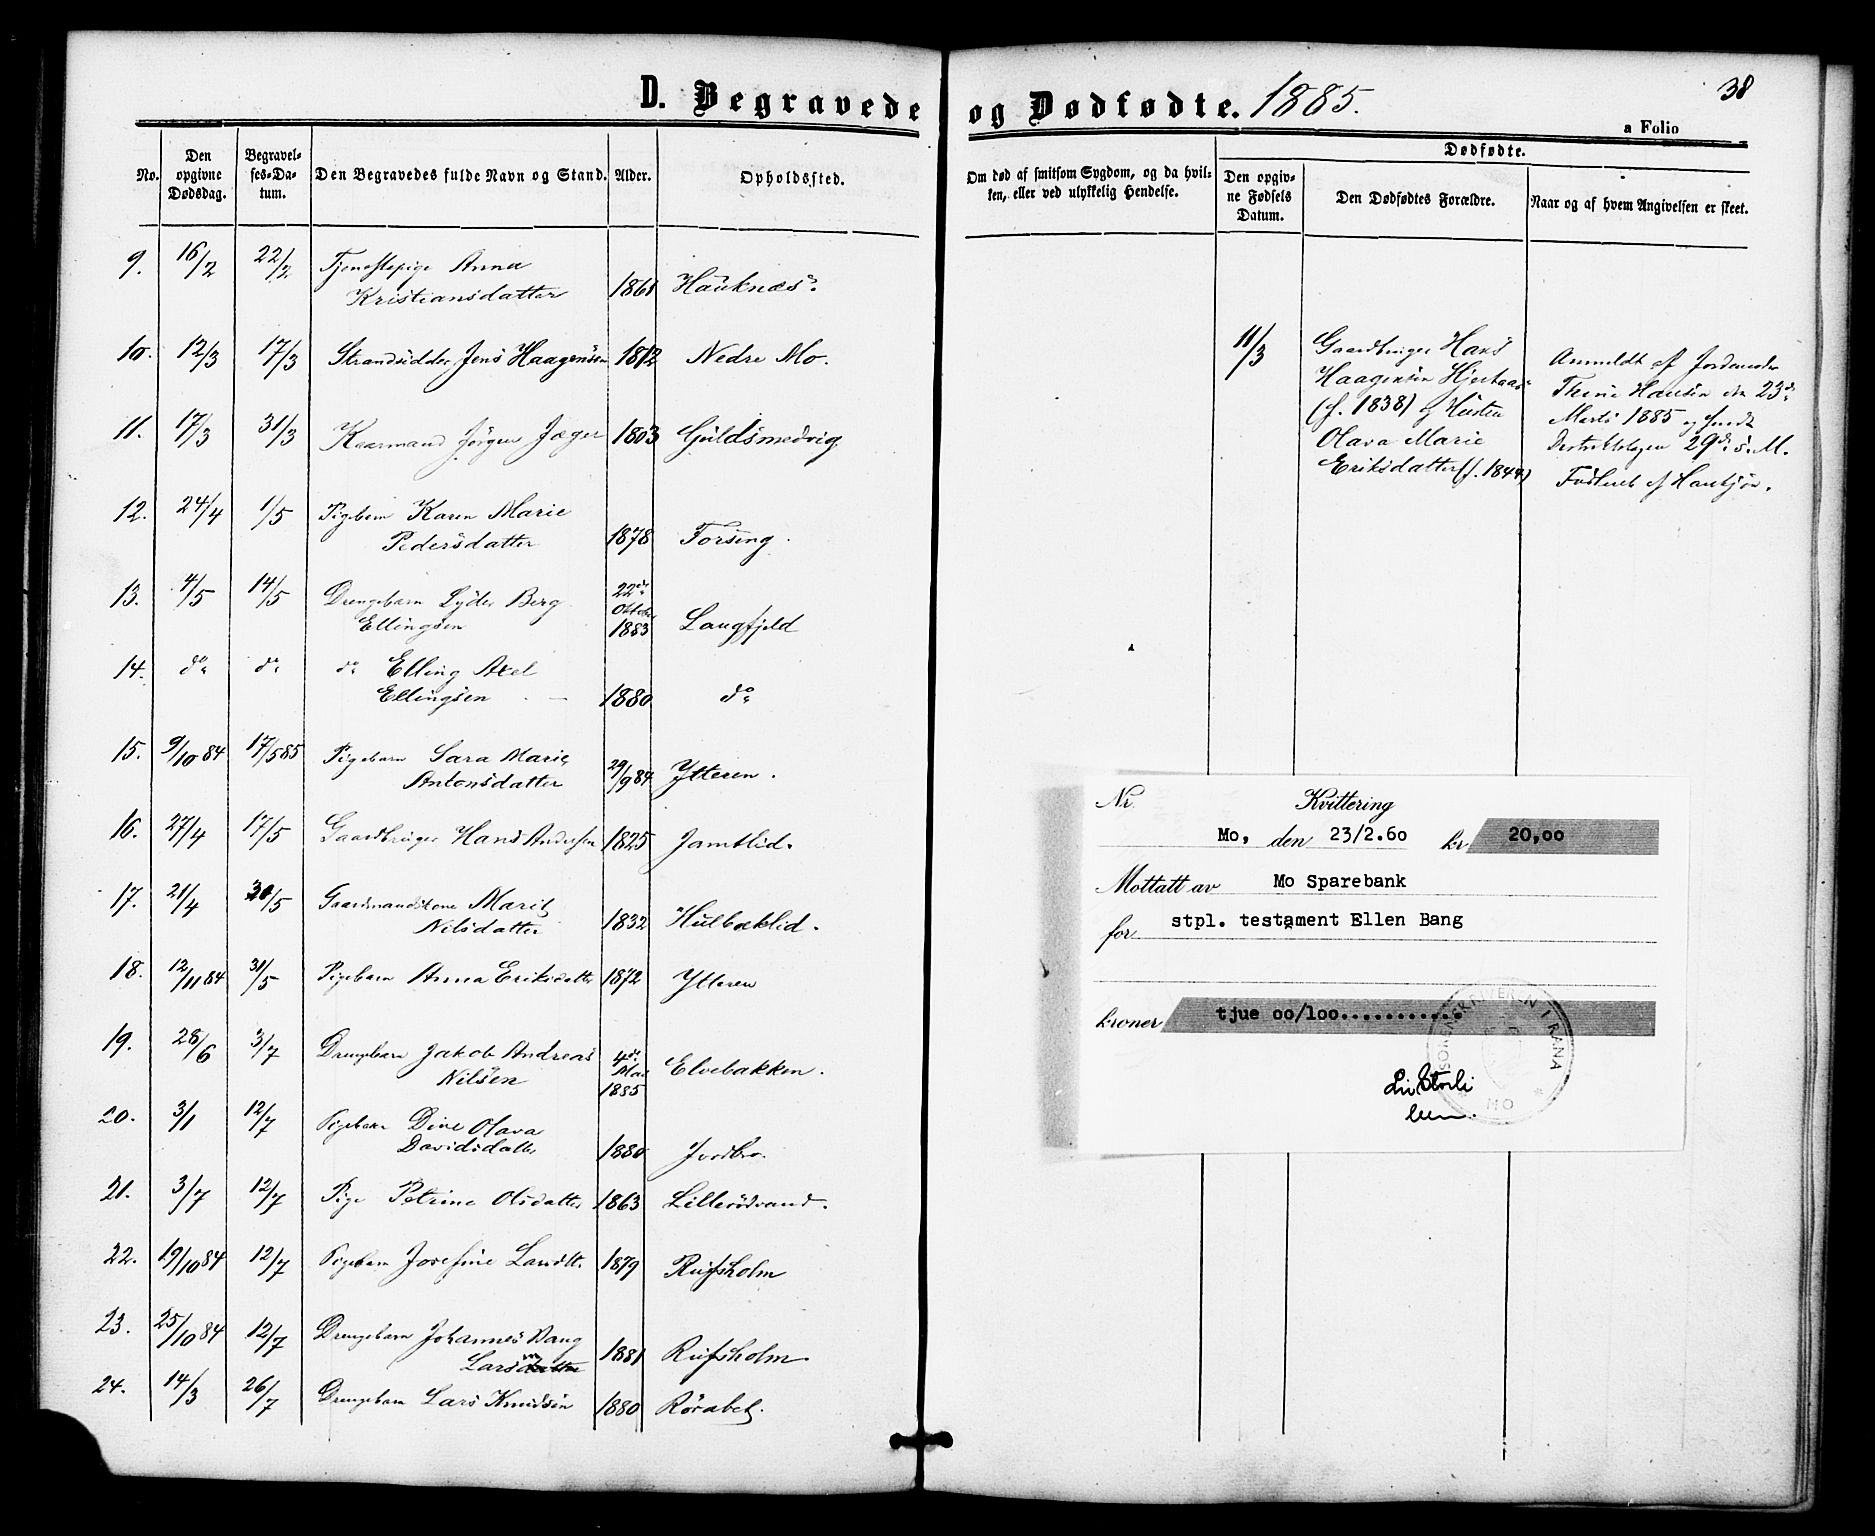 D. Begravede og Dødfødte. 1885.
38
a Folio
No.
Den opgivne Dødsdag.
Begravelses-Datum.
Den Begravedes fulde Navn og Stand.
Alder.
Opholdssted.
Om død af smitsom Sygdom, og da hvilken, eller ved ulykkelig Hendelse.
Dødfødte.
Den opgivne Fødsels Datum.
Den Dødfødtes Forældre.
Naar og af hvem Angivelsen er skeet.
9. 16/2 22/2 Tjenestepige Anna
Kristiansdatter 1861 Hauknæs.
10. 12/3 17/3 Strandsidder Jens Haagensen 1812 Nedre Mo.
11. 17/3 31/3 Kaarmand Jörgen Jæger 1803 Guldsmedvig
12. 24/4 1/5 Pigebarn Karen Marie
Pedersdatter 1878 Forsing.
13. 4/5 14/5 Drengebarn Lyder Berg 22de
Ellingsen Oktober 1883 Langfjeld
14. do do do Elling Axel
Ellingsen 1880 do
15. 9/10 84 17/5 85 Pigebarn Sara Marie
Antonsdatter 29/9 84 Ytteren.
16. 27/4 17/5 Gaardbruger Hans Andersen 1825 Jamtlid.
17. 21/4 /5 Gaardmandskone Marit
Nilsdatter 1832 Hulbæklid.
18. 12/11 84 31/5 Pigebarn Anna Eriksdatter 1872 Ytteren
19. 28/6 3/7 Drengebarn Jakob Andreas 4de
Nilsen Mai 1885 Elvebakken.
20. 3/1 12/7 Pigebarn Dine Olava
Davidsdatter 1880
21. 3/7 12/7 Pige Petrine Olsdatter 1863
22. 19/10 84 12/7 Pigebarn Josefine Larsdtt. 1879 Rufsholm
23. 25/10 84 12/7 Drengebarn Johannes Dang
Larsdatter sen 1881 Rufsholm.
24. 14/3 26/7 Drengebarn Lars Knudsen 1880
11/3
Gaardbruger Hans
Haagensen
(f. 1838) og Hustru
Olava Marie
Eriksdatter (f. 1844)
Anmeldt af Jordemoder
Hansen den 23de
Marts 1885 og
29de s. M.
Nr. Kvittering
Mo, den 23/2.60 kr 20,00
Mottatt av Mo Sparebank
for stpl. testament Ellen Bang
kroner tjue oo/loo...........
SORENSKRIVEREN I RANA
* MO *
Liv Storli